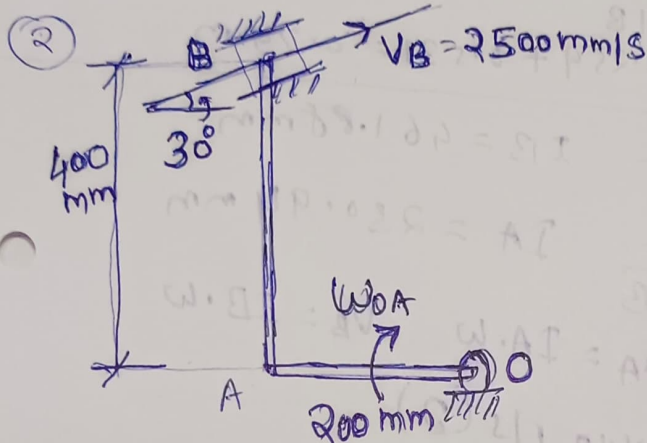 2
B
VB = 2500mm/s
30°
400
mm
WOA
A
200 mm
O